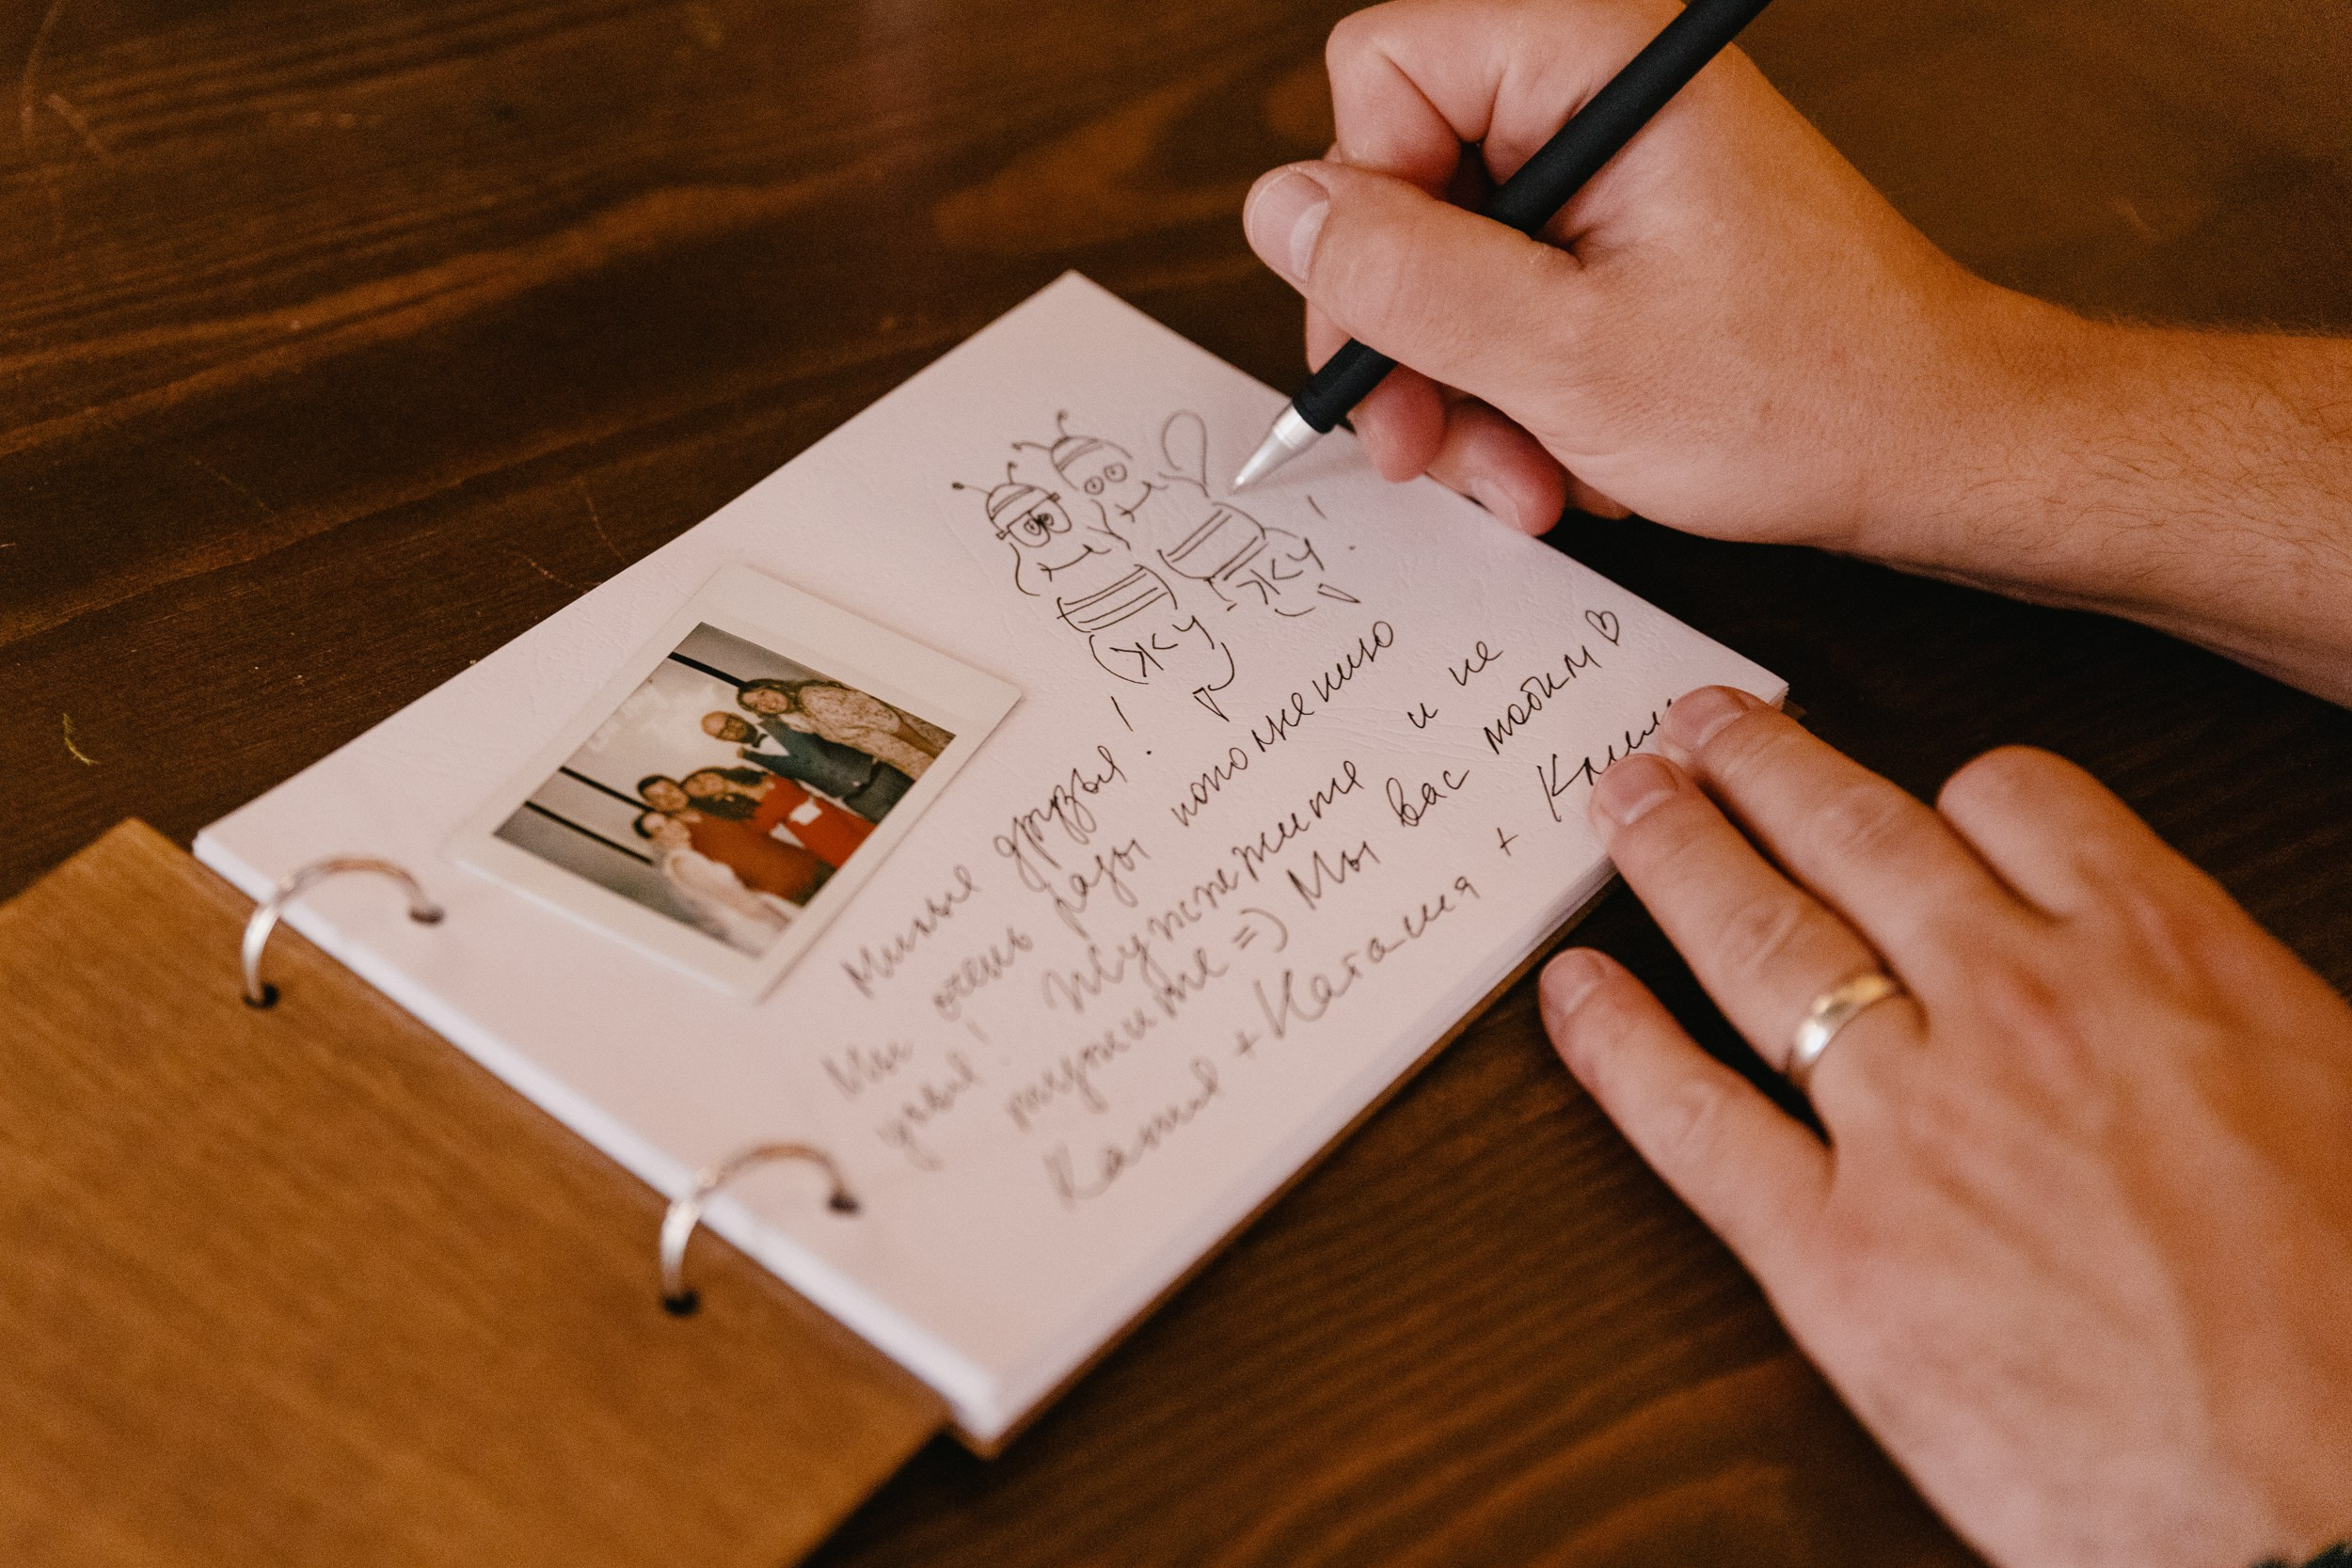 Жу-жу!
Милые друзья!
Мы очень рады пополнению
улья! Жужжите и не
тужите =) Мы вас любим ♡
Катя + Наташа +